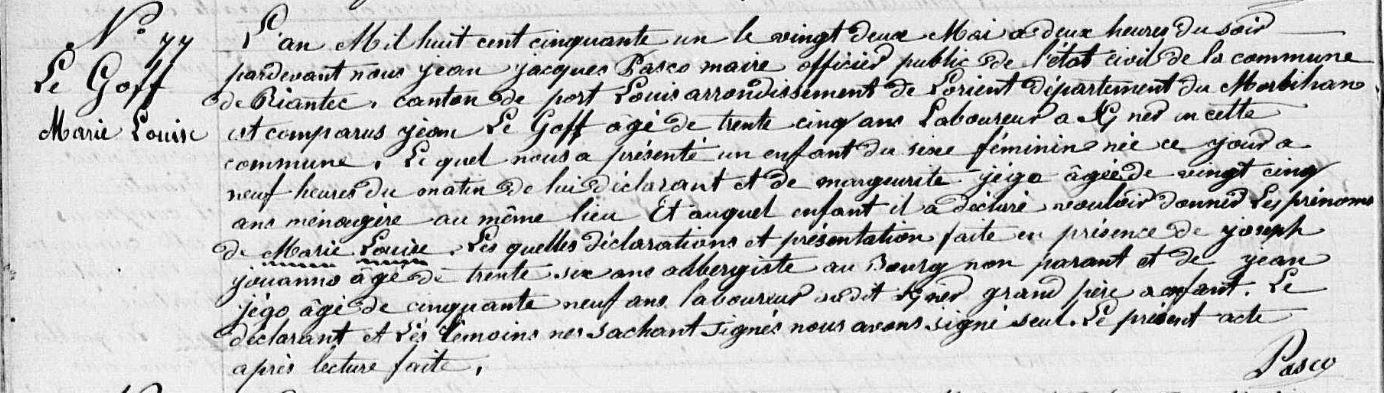 N.° 77
Le Goff
Marie Louise
L'an Mil huit cent cinquante un le vingt deux Mai a deux heures du soir
pardevant nous yean yacques Pasco maire officier public de l'état civil de la commune
de Riantec, canton de port Louis arrondissement de Lorient département du Morbihan
est comparus yean Le Goff âgé de trente cinq ans Laboureur a K/ner en cette
commune, Le quel nous a présenté un enfant du sexe féminin née ce your a
neuf heures du matin de lui déclarant et de margeurite jego âgée de vingt cinq
ans ménagère au même lieu Et auquel enfant il a déclaré vouloir donner Les prénoms
de Marie Louise. Les quelles déclarations et présentation faite en présence de yoseph
youanno âgé de trente six ans aubergiste au Bourg non parant et de yean
jégo âgé de cinquante neuf ans laboureur audit K/ner grand père a enfant. Le
déclarant et Les témoins ne sachant signés nous avons signé seul. Le présent acte
après lecture faite,
Pasco